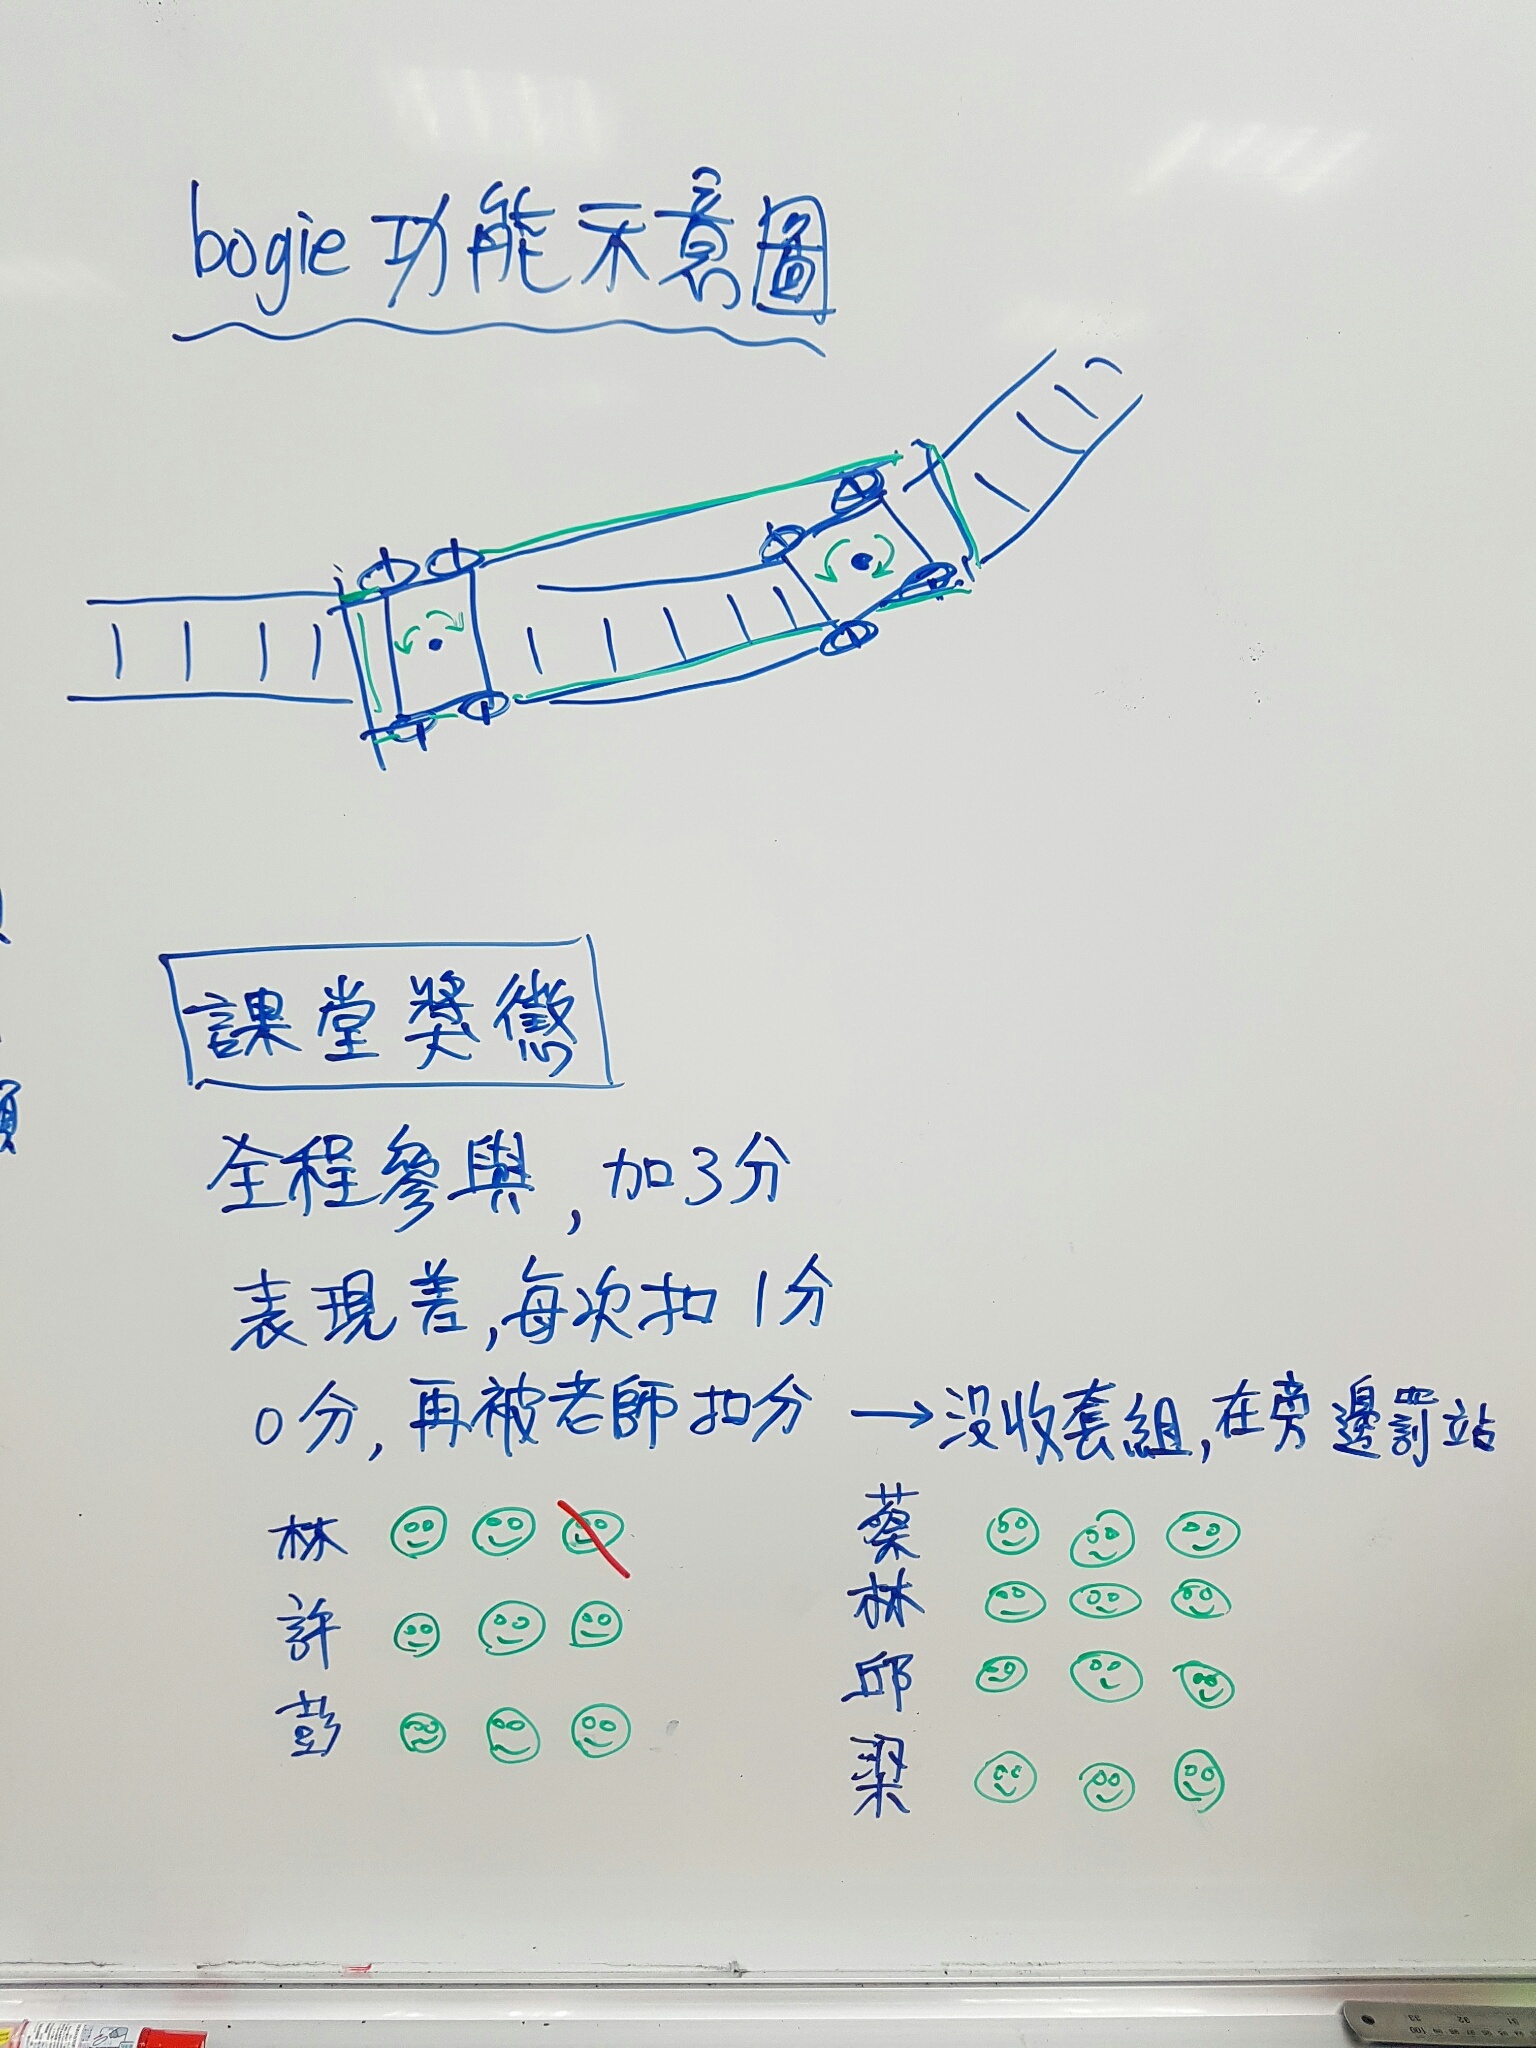 bogie 功能示意圖
課堂獎懲
全程參與, 加3分
表現差, 每次扣1分
0分, 再被老師扣分 → 沒收套組, 在旁邊罰站
林
許
彭
蔡
林
邱
梁